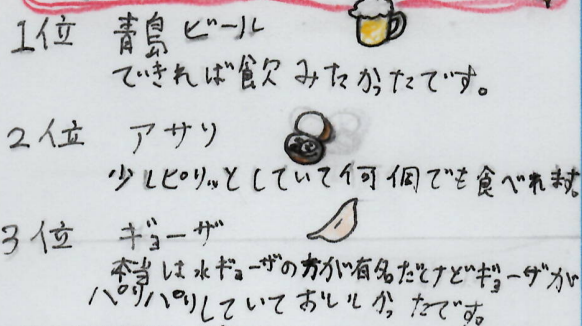 1位 青島ビール
できれば飲みたかったです。
2位 アサリ
少しピリッとしていて何個でも食べれます。
3位 ギョーザ
本当は水ギョーザの方が有名だけどギョーザが
パリパリしていておいしかったです。